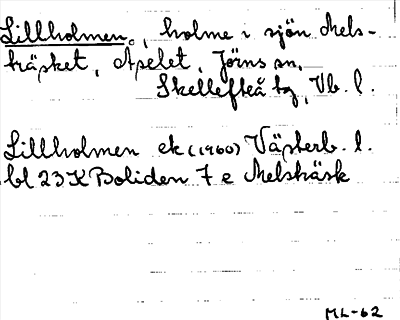 Lillholmen, holme i sjön Mels-
träsket, Apelet, Jörns sn,
Skellefteå tg, Vb. l.
Lillholmen ek (1960) Västerb. l.
bl 23K Boliden 7 e Melsträsk
ML-62